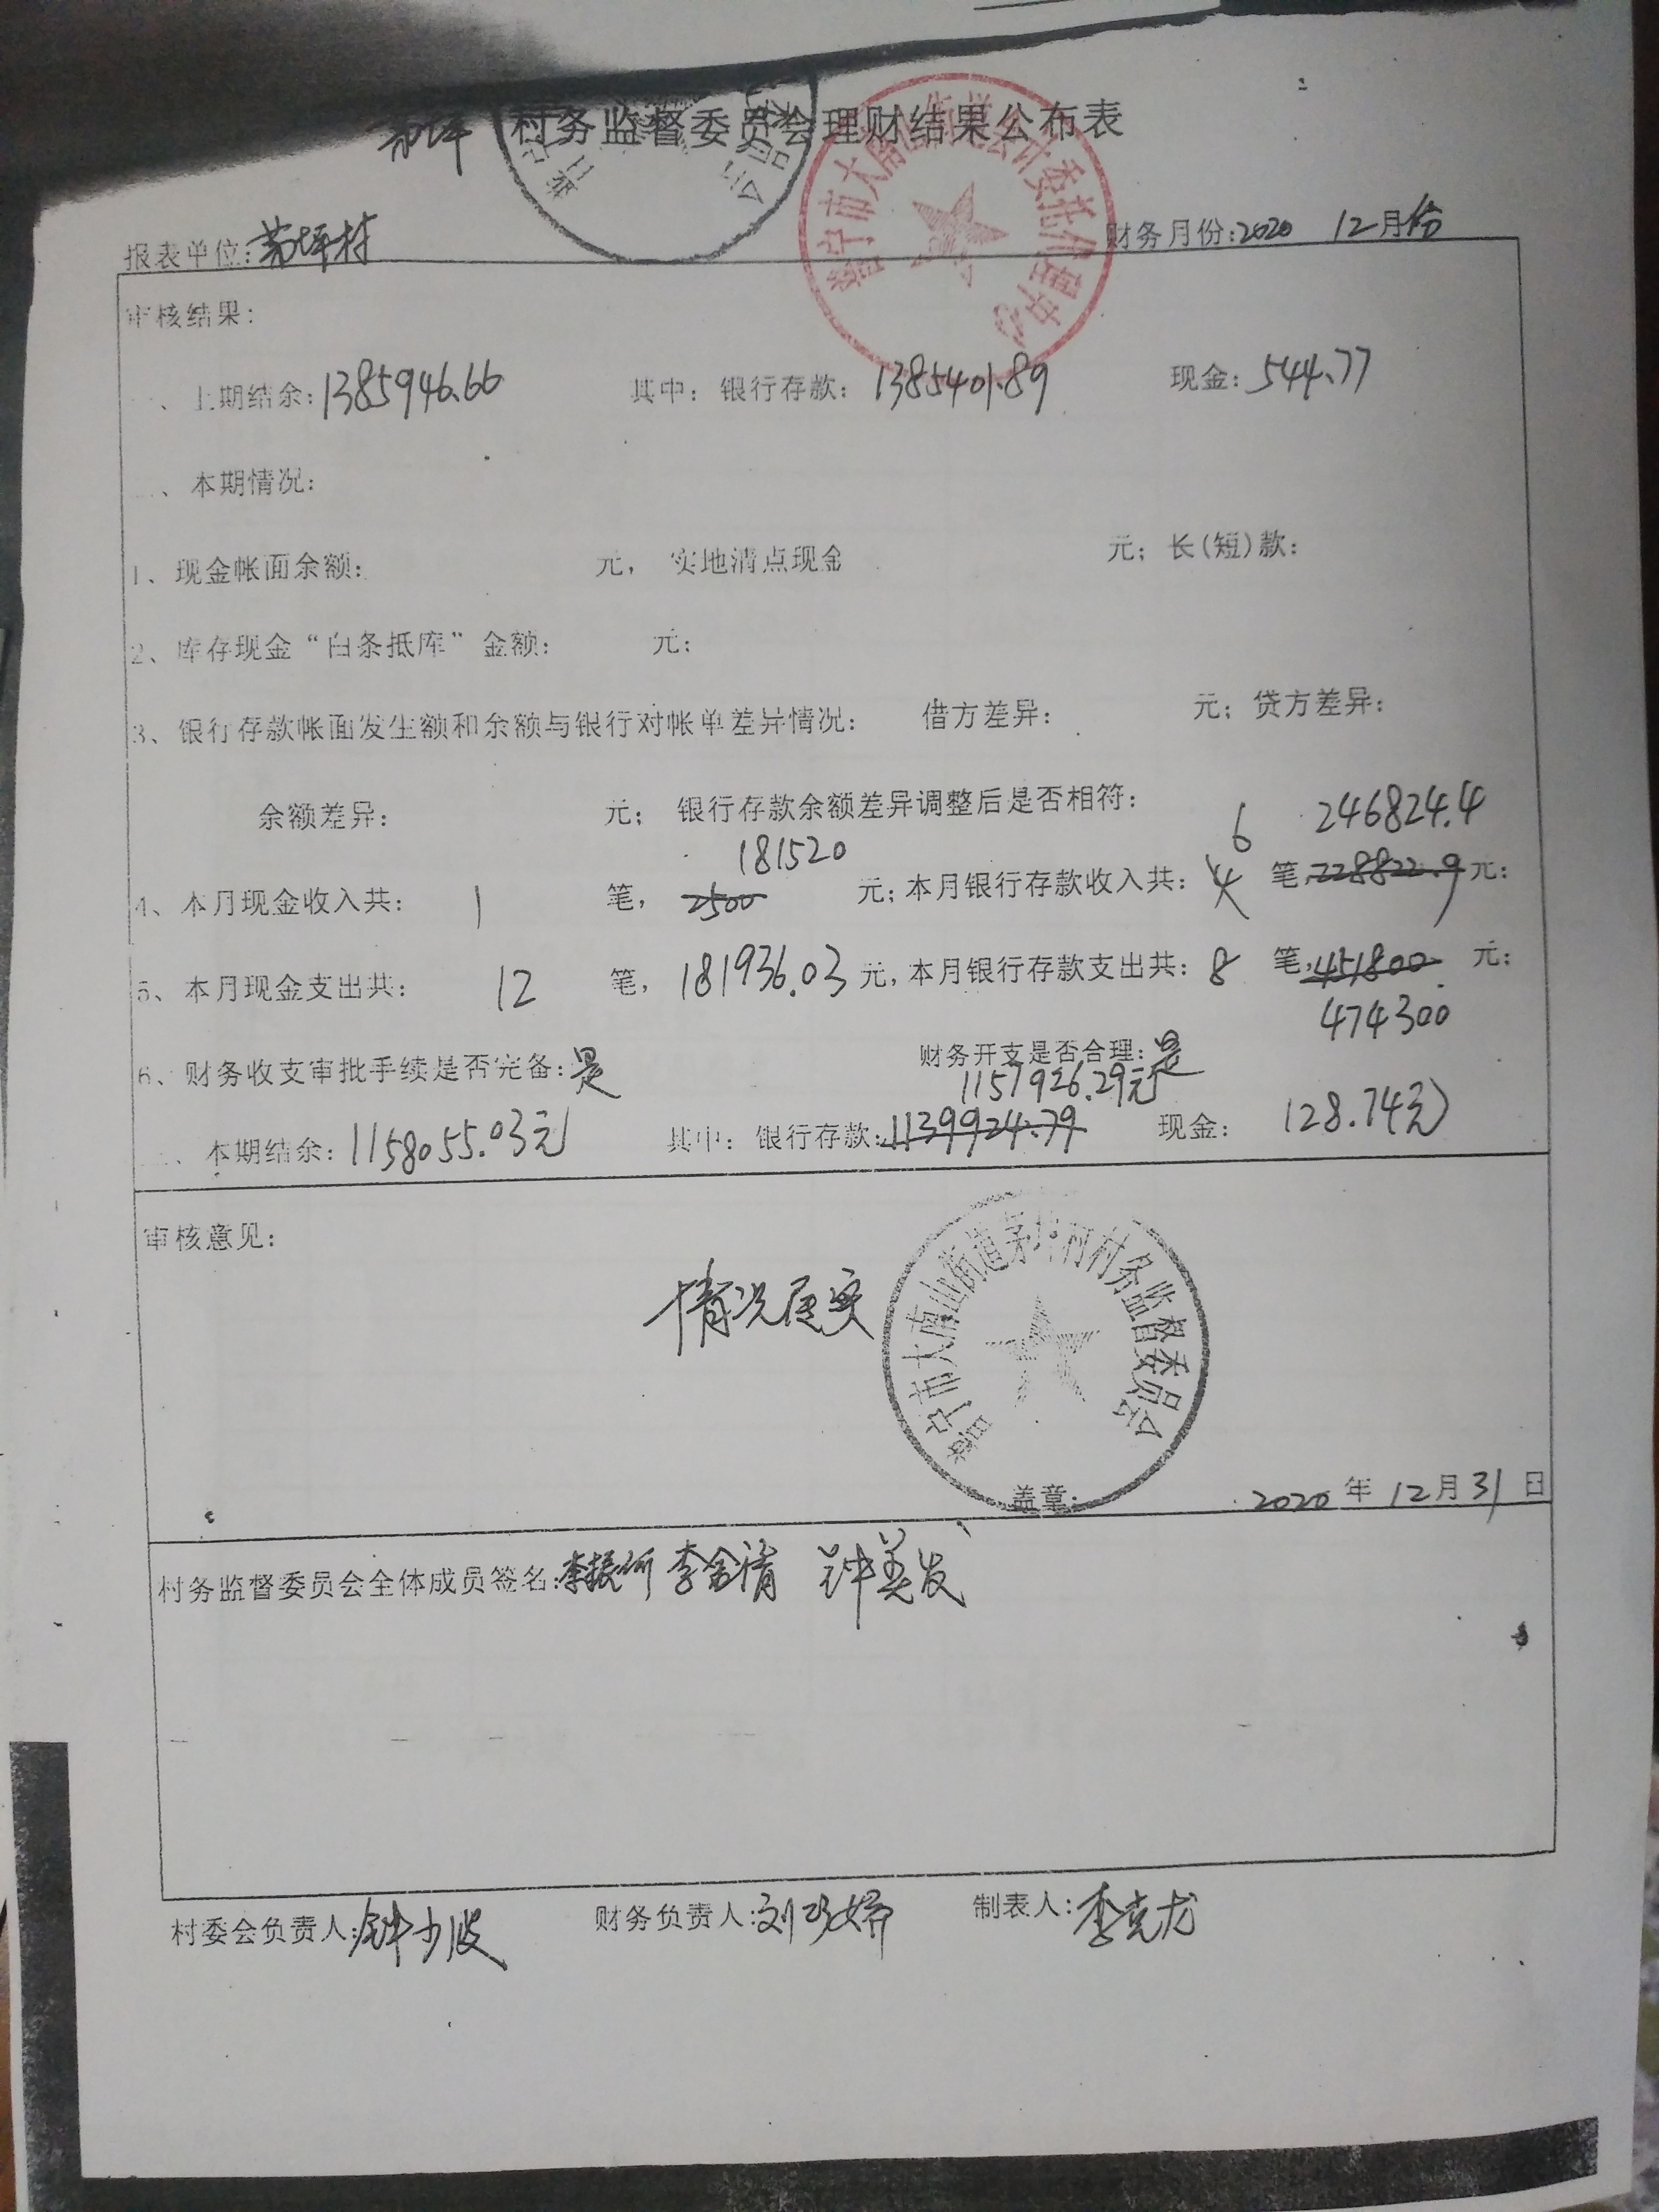 茅坪 村务监督委员会理财结果公布表
普宁市大南山街道会计委托代理中心
报表单位:茅坪村 财务月份:2020 12月份
审核结果:
、上期结余:1385946.66 其中: 银行存款: 1385401.89 现金: 544.77
、本期情况:
1、现金帐面余额: 元, 实地清点现金 元; 长(短)款:
2、库存现金“白条抵库”金额: 元;
3、银行存款帐面发生额和余额与银行对帐单差异情况: 借方差异: 元; 贷方差异:
余额差异: 元; 银行存款余额差异调整后是否相符:
181520 6 246824.4
4、本月现金收入共: 1 笔, 2500 元; 本月银行存款收入共: 4 笔, 228822.9 元;
5、本月现金支出共: 12 笔, 181936.03 元, 本月银行存款支出共: 8 笔, 451800 元;
474300
6、财务收支审批手续是否完备: 是 财务开支是否合理: 是
1157926.29元
、本期结余: 1158055.03元 其中: 银行存款: 1139924.79 现金: 128.74元
审核意见:
情况属实
普宁市大南山街道茅坪村村务监督委员会
盖章: 2020 年 12 月 31 日
村务监督委员会全体成员签名: 李振 李金清 钟美发
村委会负责人: 钟少波 财务负责人: 刘巧娇 制表人: 李克龙